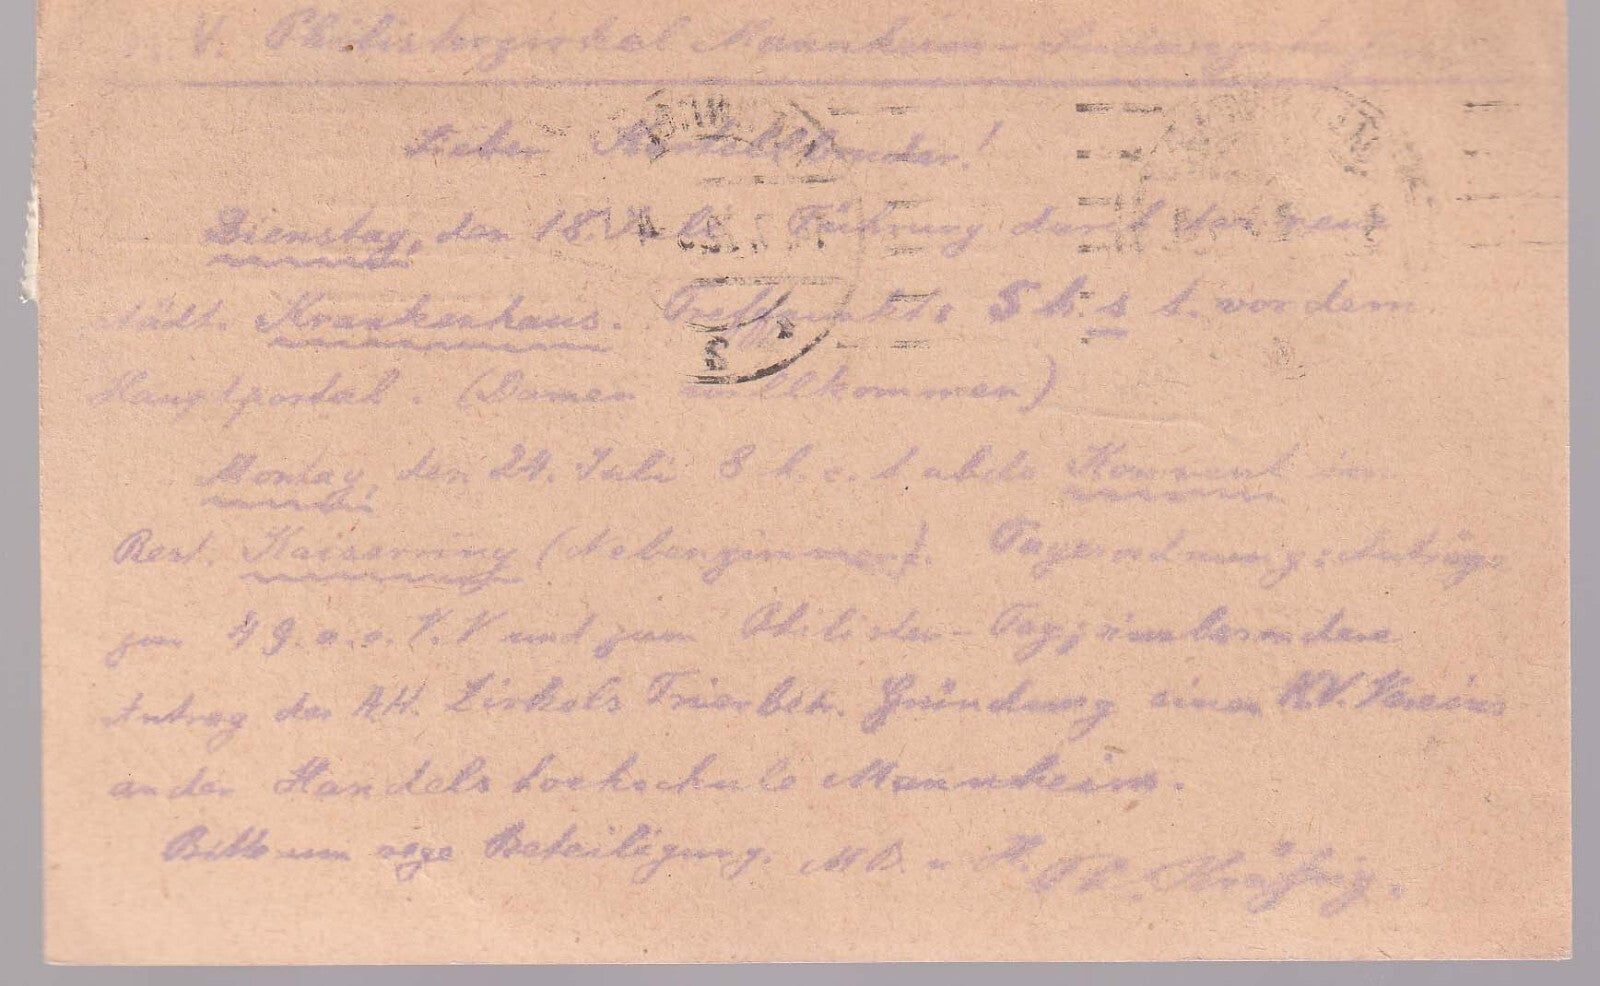 V. Philisterzirkel Mannheim - Ludwigshafen
Lieber Kartellbruder!
Dienstag, den 18. Juli Führung durch das neue
städt. Krankenhaus. Treffpunkt: 5 h. s. t. vor dem
Hauptportal. (Damen willkommen)
Montag, den 24. Juli 8 h. c. t. abds Konvent im
Rest. Kaiserring (Nebenzimmer). Tagesordnung: Anträge
zur 49. o. o. V. V und zum Philister-Tag; insbesondere
Antrag des AH. Zirkels Trier betr. Gründung eines K.V. Vereins
an der Handelshochschule Mannheim.
Bitte um rege Beteiligung. M